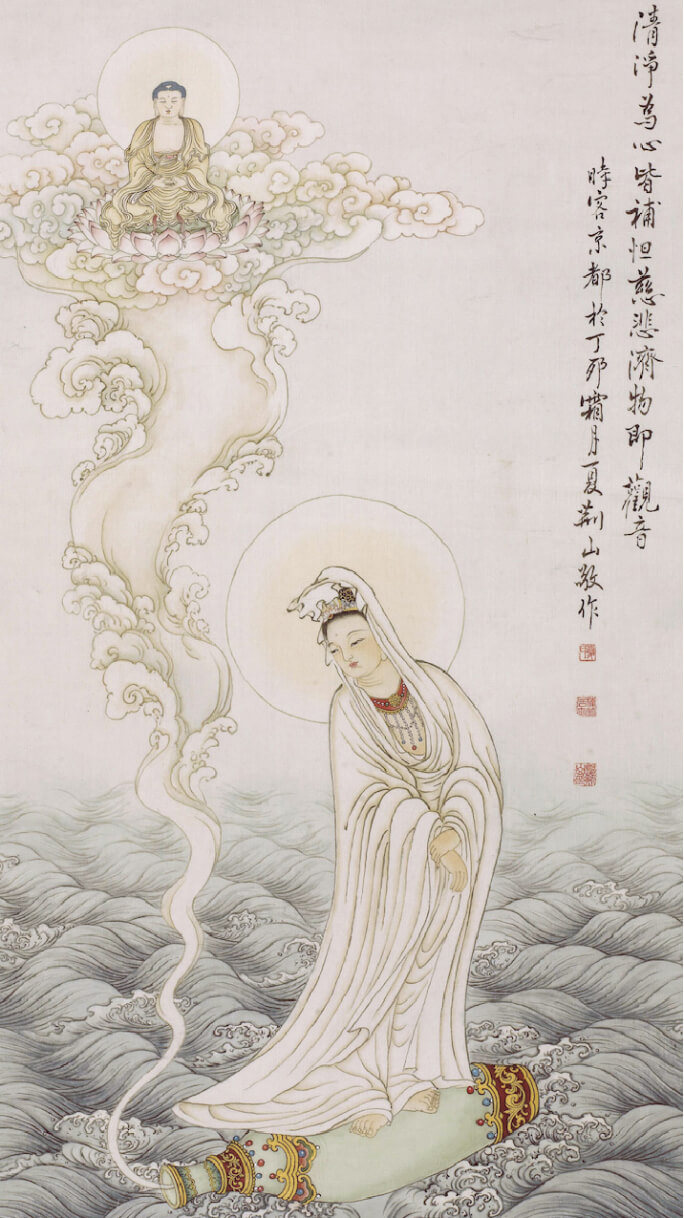 清淨為心皆補怛慈悲濟物即觀音
時客京都於丁卯霜月夏荊山敬作